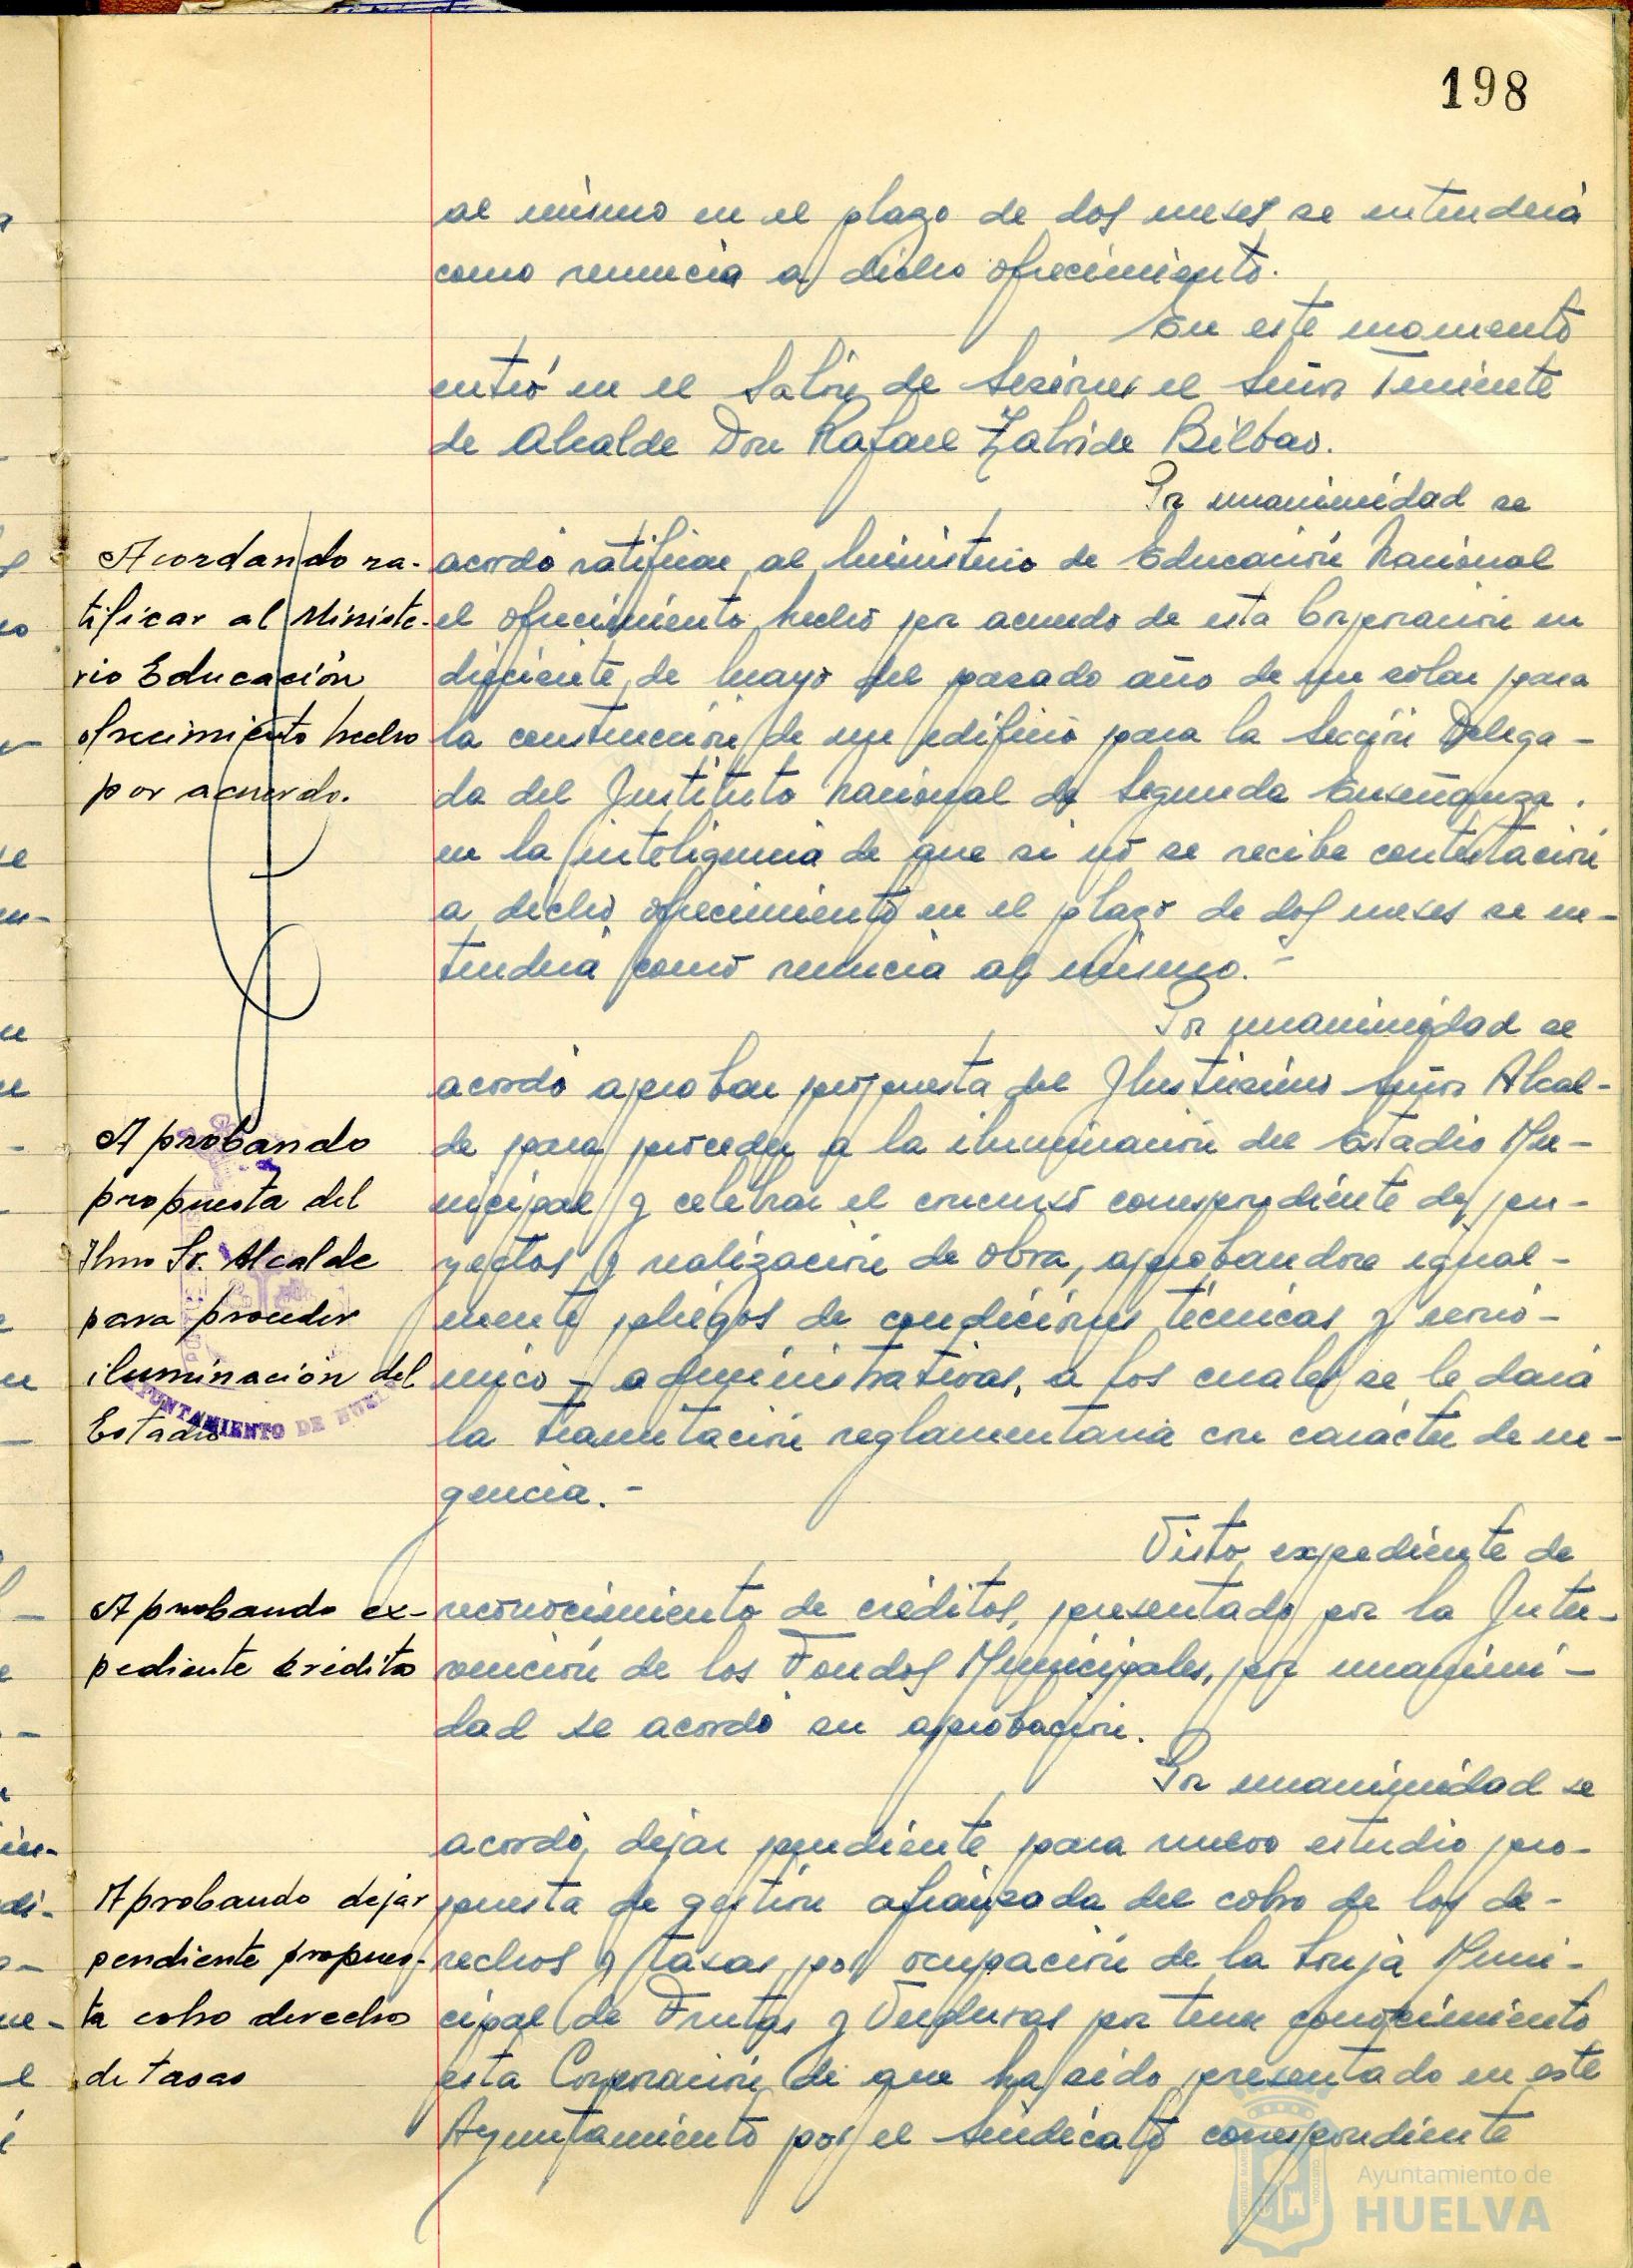 198
al mismo en el plazo de dos meses se entenderá
como renuncia a dicho ofrecimiento.
En este momento
entró en el Salón de Sesiones el Señor Teniente
de Alcalde Don Rafael Zalvide Bilbao.
Por unanimidad se
Acordando ra-
tificar al Ministe-
rio Educación
ofrecimiento hecho
por acuerdo.
acordó ratificar al Ministerio de Educación Nacional
el ofrecimiento hecho por acuerdo de esta Corporación en
de Mayo del pasado año de un solar para
la construcción de un edificio para la Sección Delega-
da del Instituto Nacional de Segunda Enseñanza.
en la inteligencia de que si nó se recibe contestación
a dicho ofrecimiento en el plazo de dos meses se en-
tenderá como renuncia al mismo.-
Por unanimidad se
acordó aprobar propuesta del Ilustrísimo Señor Alcal-
Aprobando
propuesta del
Ilmo Sr. Alcalde
para proceder
iluminación del
Estadio
AYUNTAMIENTO DE HUELVA
de para proceder a la iluminación del Estadio Mu-
nicipal y celebrar el concurso correspondiente de pro-
yectos y realización de obra, aprobandose igual-
mente pliegos de condiciones técnicas y econó-
mico-administrativas, a los cuales se le dará
la tramitación reglamentaria con carácter de ur-
gencia.-
Visto expediente de
Aprobando ex-
pediente créditos
reconocimiento de créditos, presentado por la Inter-
vención de los Fondos Municipales, por unanimi-
dad se acordó su aprobación.
Por unanimidad se
acordó, dejar pendiente para nuevo estudio pro-
Aprobando dejar
pendiente propues-
ta cobro derechos
de tasas
puesta de gestión afianzada del cobro de los de-
rechos y tasas por ocupación de la Lonja Muni-
cipal de Frutas y Verduras por tener conocimiento
esta Corporación de que ha sido presentado en este
Ayuntamiento por el Sindicato correspondiente
Ayuntamiento de
HUELVA